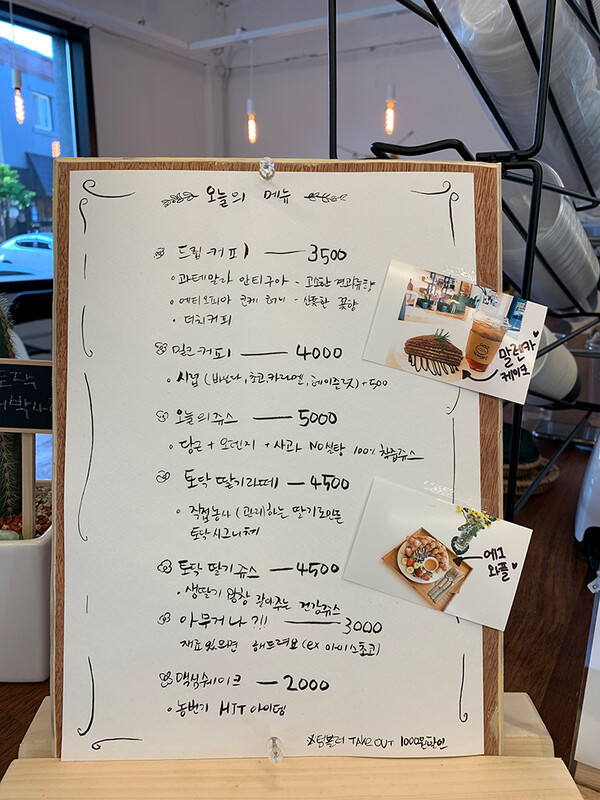 오늘의 메뉴
드립 커피 — 3500
• 과테말라 안티구아 - 고소한 견과류향
• 에티오피아 코케 허니 - 산뜻한 꽃향
• 더치커피
밀크커피 — 4000
• 시럽 (바닐라, 초코, 카라멜, 헤이즐넛) +500
오늘의쥬스 — 5000
• 당근 + 오렌지 + 사과 NO설탕 100% 착즙쥬스
토닥 딸기라떼 — 4500
• 직접농사 (관리)하는 딸기로만든
토닥시그니쳐
토닥 딸기쥬스 — 4500
• 생딸기 왕창 갈아주는 건강쥬스
아무거나?!! — 3000
재료있으면 해드려요 (ex 아이스초코)
맥심쉐이크 — 2000
• 농번기 HIT 아이템
※텀블러 TAKE OUT 1000원할인
말렌카
케이크
에그
와플